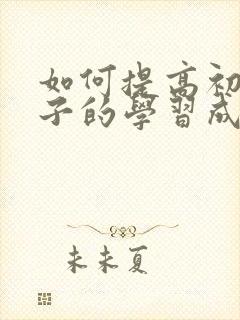 如何提高初
子的學習成
未未夏